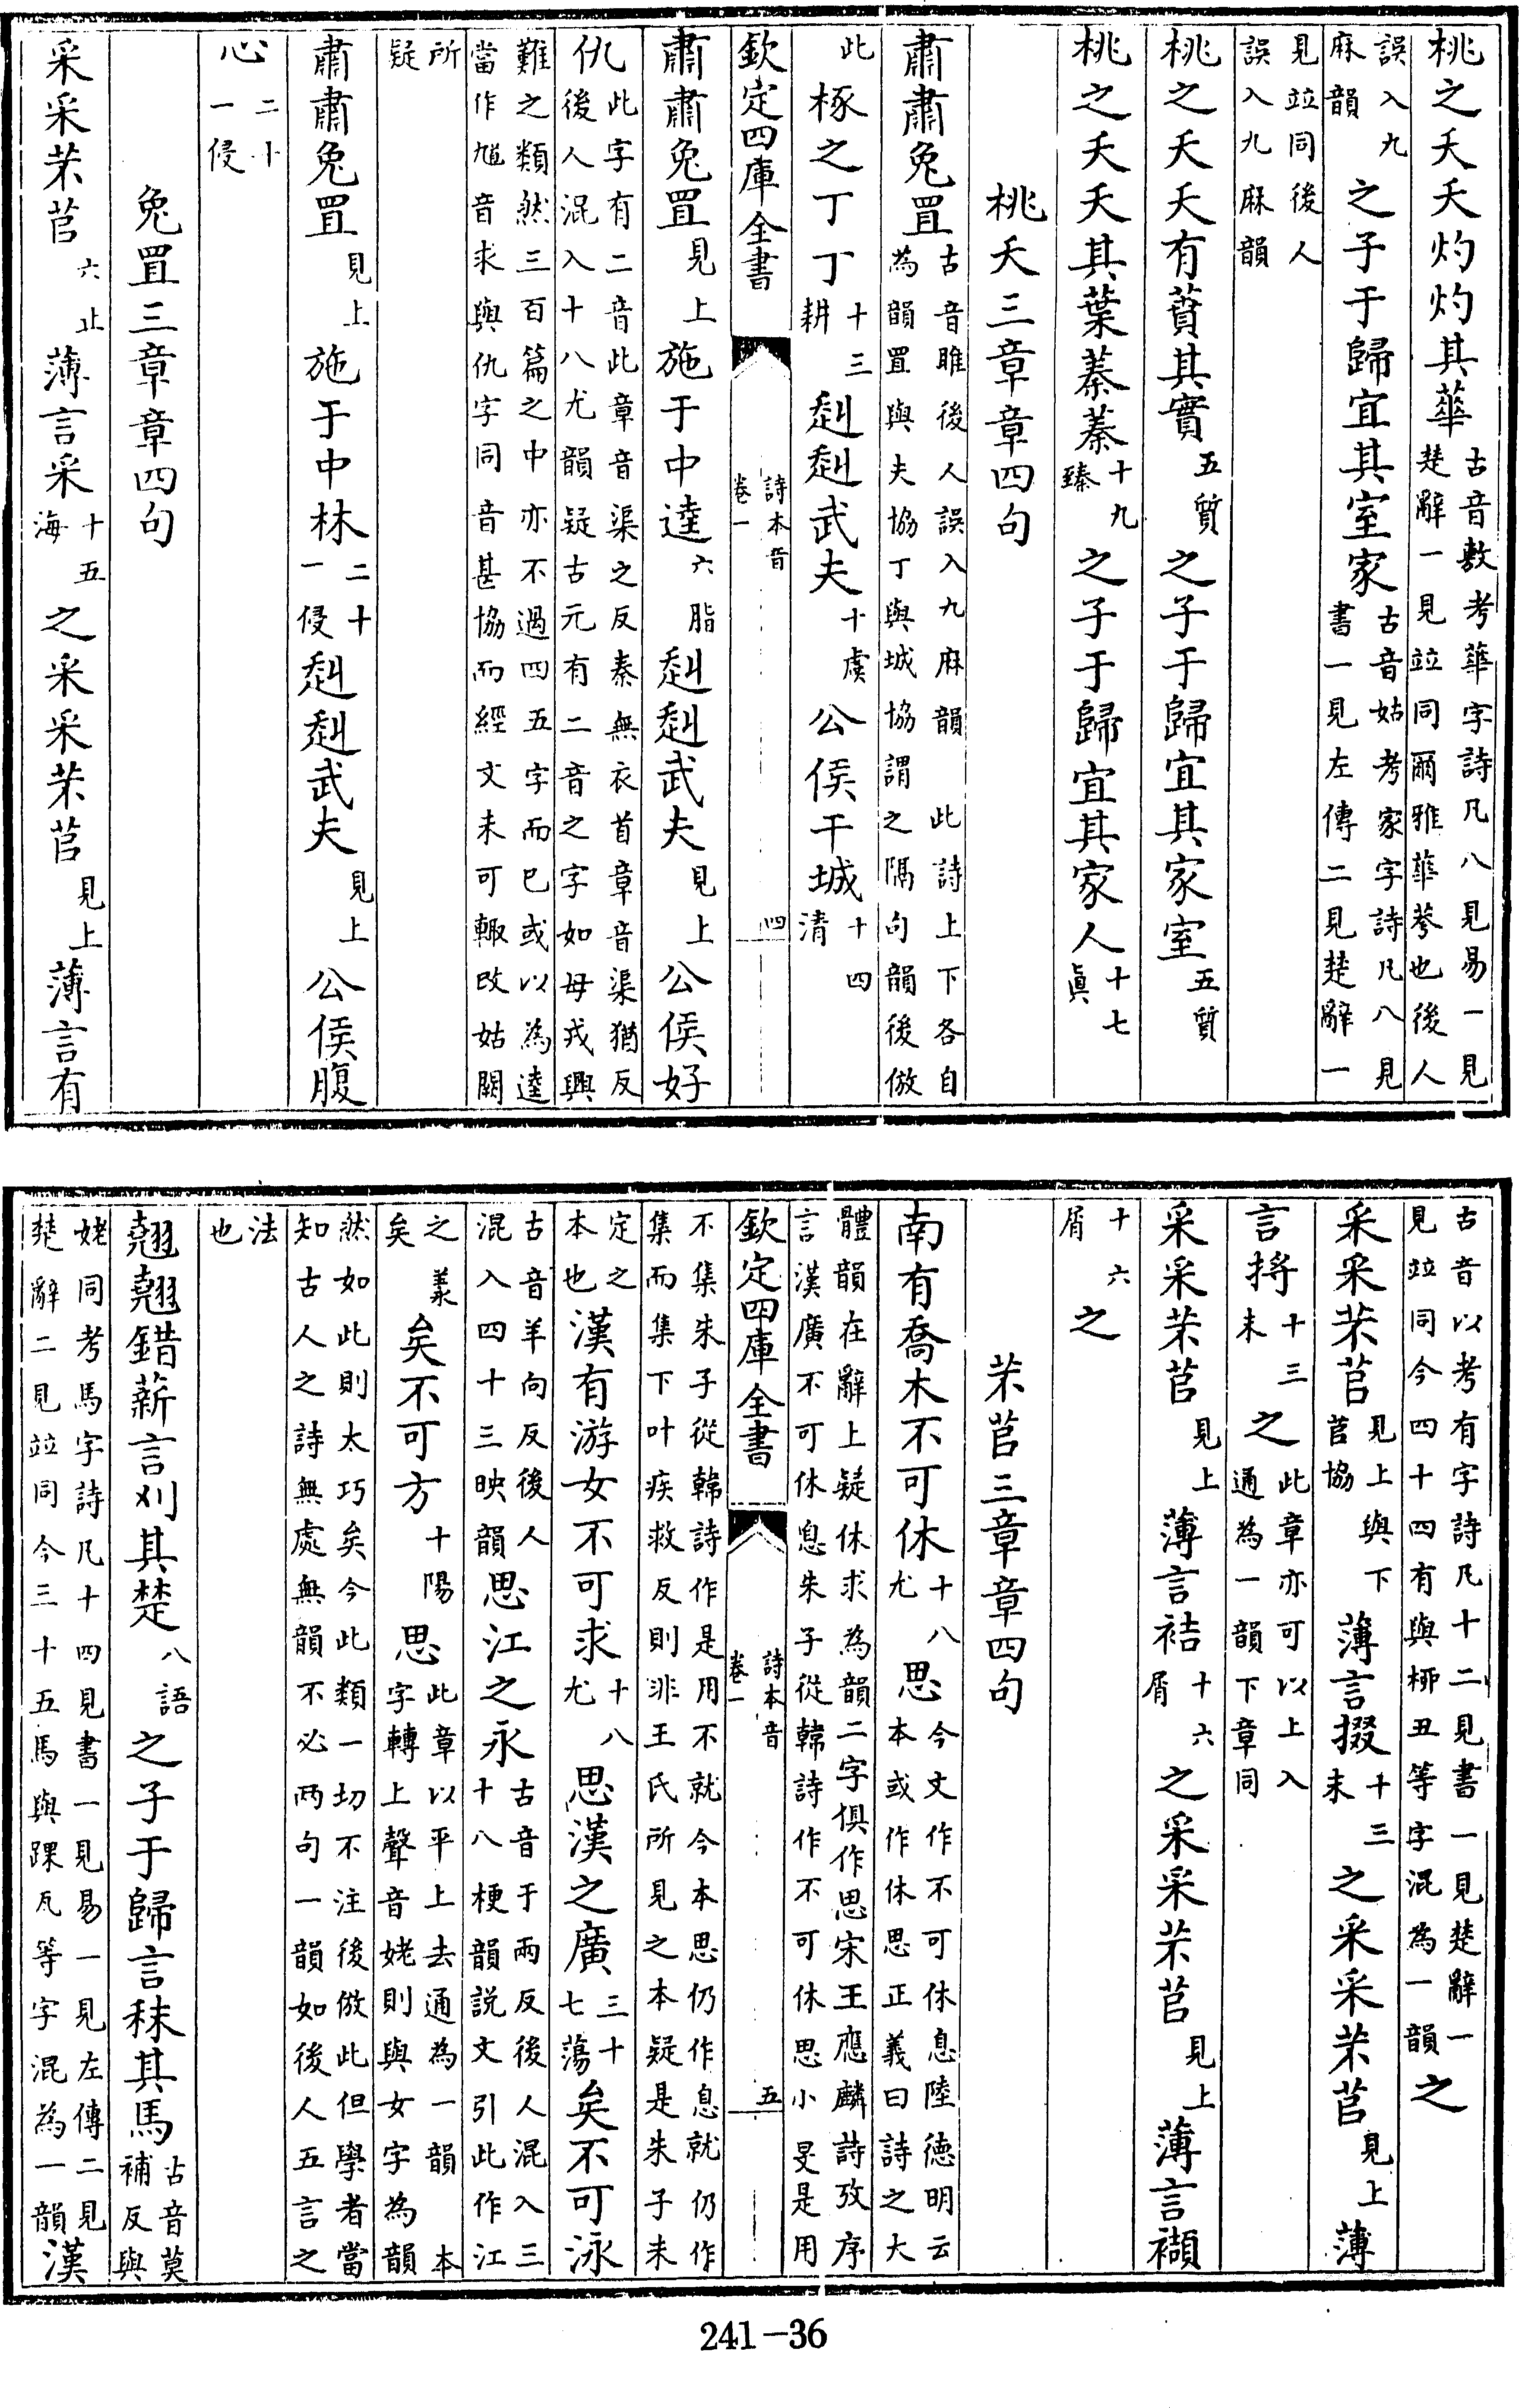 桃之夭夭灼灼其華古音敷考華字詩凡八見易一見楚辭一見竝同爾雅華荂也後人
誤入九麻韻之子于歸宜其室家古音姑考家字詩凡八見書一見左傳二見楚辭一
見竝同後人誤入九麻韻
桃之夭夭有蕡其實五質之子于歸宜其家室五質
桃之夭夭其葉蓁蓁十九臻之子于歸宜其家人十七眞
桃夭三章章四句
肅肅兔罝古音雎後人誤入九麻韻此詩上下各自為韻罝與夫協丁與城協謂之隔句韻後倣
此椓之丁丁十三耕赳赳武夫十虞公侯干城十四清
欽定四庫全書 詩本音卷一 四
肅肅兔罝見上施于中逵六脂赳赳武夫見上公侯好
仇此字有二音此章音渠之反秦無衣首章音渠猶反後人混入十八尤韻疑古元有二音之字如母戎興
難之類然三百篇之中亦不過四五字而已或以為逵當作馗音求與仇字同音甚協而經文未可輙改姑闕
所疑
肅肅兔罝見上施于中林二十一侵赳赳武夫見上公侯腹
心二十一侵
兔罝三章章四句
采采芣苢六止薄言采十五海之采采芣苢見上薄言有
古音以考有字詩凡十二見書一見楚辭一見竝同今四十四有與栁丑等字混為一韻之
采采芣苢見上與下苢協薄言掇十三末之采采芣苢見上薄
言捋十三末之此章亦可以上入通為一韻下章同
采采芣苢見上薄言袺十六屑之采采芣苢見上薄言襭
十六屑之
芣苢三章章四句
南有喬木不可休十八尤思今文作不可休息陸德明云本或作休思正義曰詩之大
體韻在辭上疑休求為韻二字俱作思宋王應麟詩攷序言漢廣不可休息朱子從韓詩作不可休思小旻是用
欽定四庫全書 詩本音卷一 五
不集朱子從韓詩作是用不就今本思仍作息就仍作集而集下叶疾救反則非王氏所見之本疑是朱子未
定之本也漢有游女不可求十八尤思漢之廣三十七蕩矣不可泳
古音羊向反後人混入四十三映韻思江之永古音于兩反後人混入三十八梗韻説文引此作江
之羕矣矣不可方十陽思此章以平上去通為一韻本字轉上聲音姥則與女字為韻
然如此則太巧矣今此類一切不注後倣此但學者當知古人之詩無處無韻不必兩句一韻如後人五言之
法也
翹翹錯薪言刈其楚八語之子于歸言秣其馬古音莫補反與
姥同考馬字詩凡十四見書一見易一見左傳二見楚辭二見竝同今三十五馬與踝瓦等字混為一韻漢
241-36